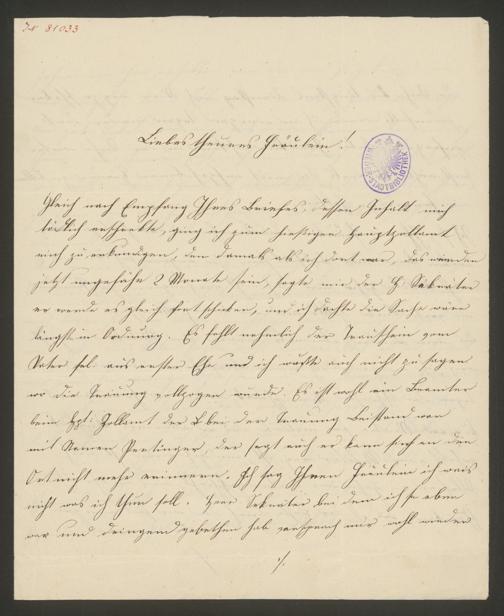 JN 81033
Liebes theures Fräulein!
WIENER STADTBIBLIOTHEK
Gleich nach Empfang Ihres Briefes, dessen Inhalt mich
tödtlich erschreckte, ging ich zum hiesigen Hauptzollamt
mich zu erkundigen, denn damals als ich dort war, das werden
jetzt ungefähr 2 Monate sein, sagte mir der H Sekretär
er werde es gleich fortschicken, und ich dachte die Sache wäre
längst in Ordnung. Es fehlt nehmlich der Trauschein vom
Vater sel. aus erster Ehe und ich wüßte auch nicht zu sagen
wo die Trauung vollzogen wurde. Es ist wohl ein Beamter
beim Hpt: Zollamt der bei der Trauung Beistand war
mit Namen Pertinger, der sagt auch er kann sich an den
Ort nicht mehr erinnern. Ich sag Ihnen Fräulein ich weis
nicht was ich thun soll. Herr Sekretär bei dem ich so eben
war und dringend gebethen hab versprach mir wohl wieder
./.